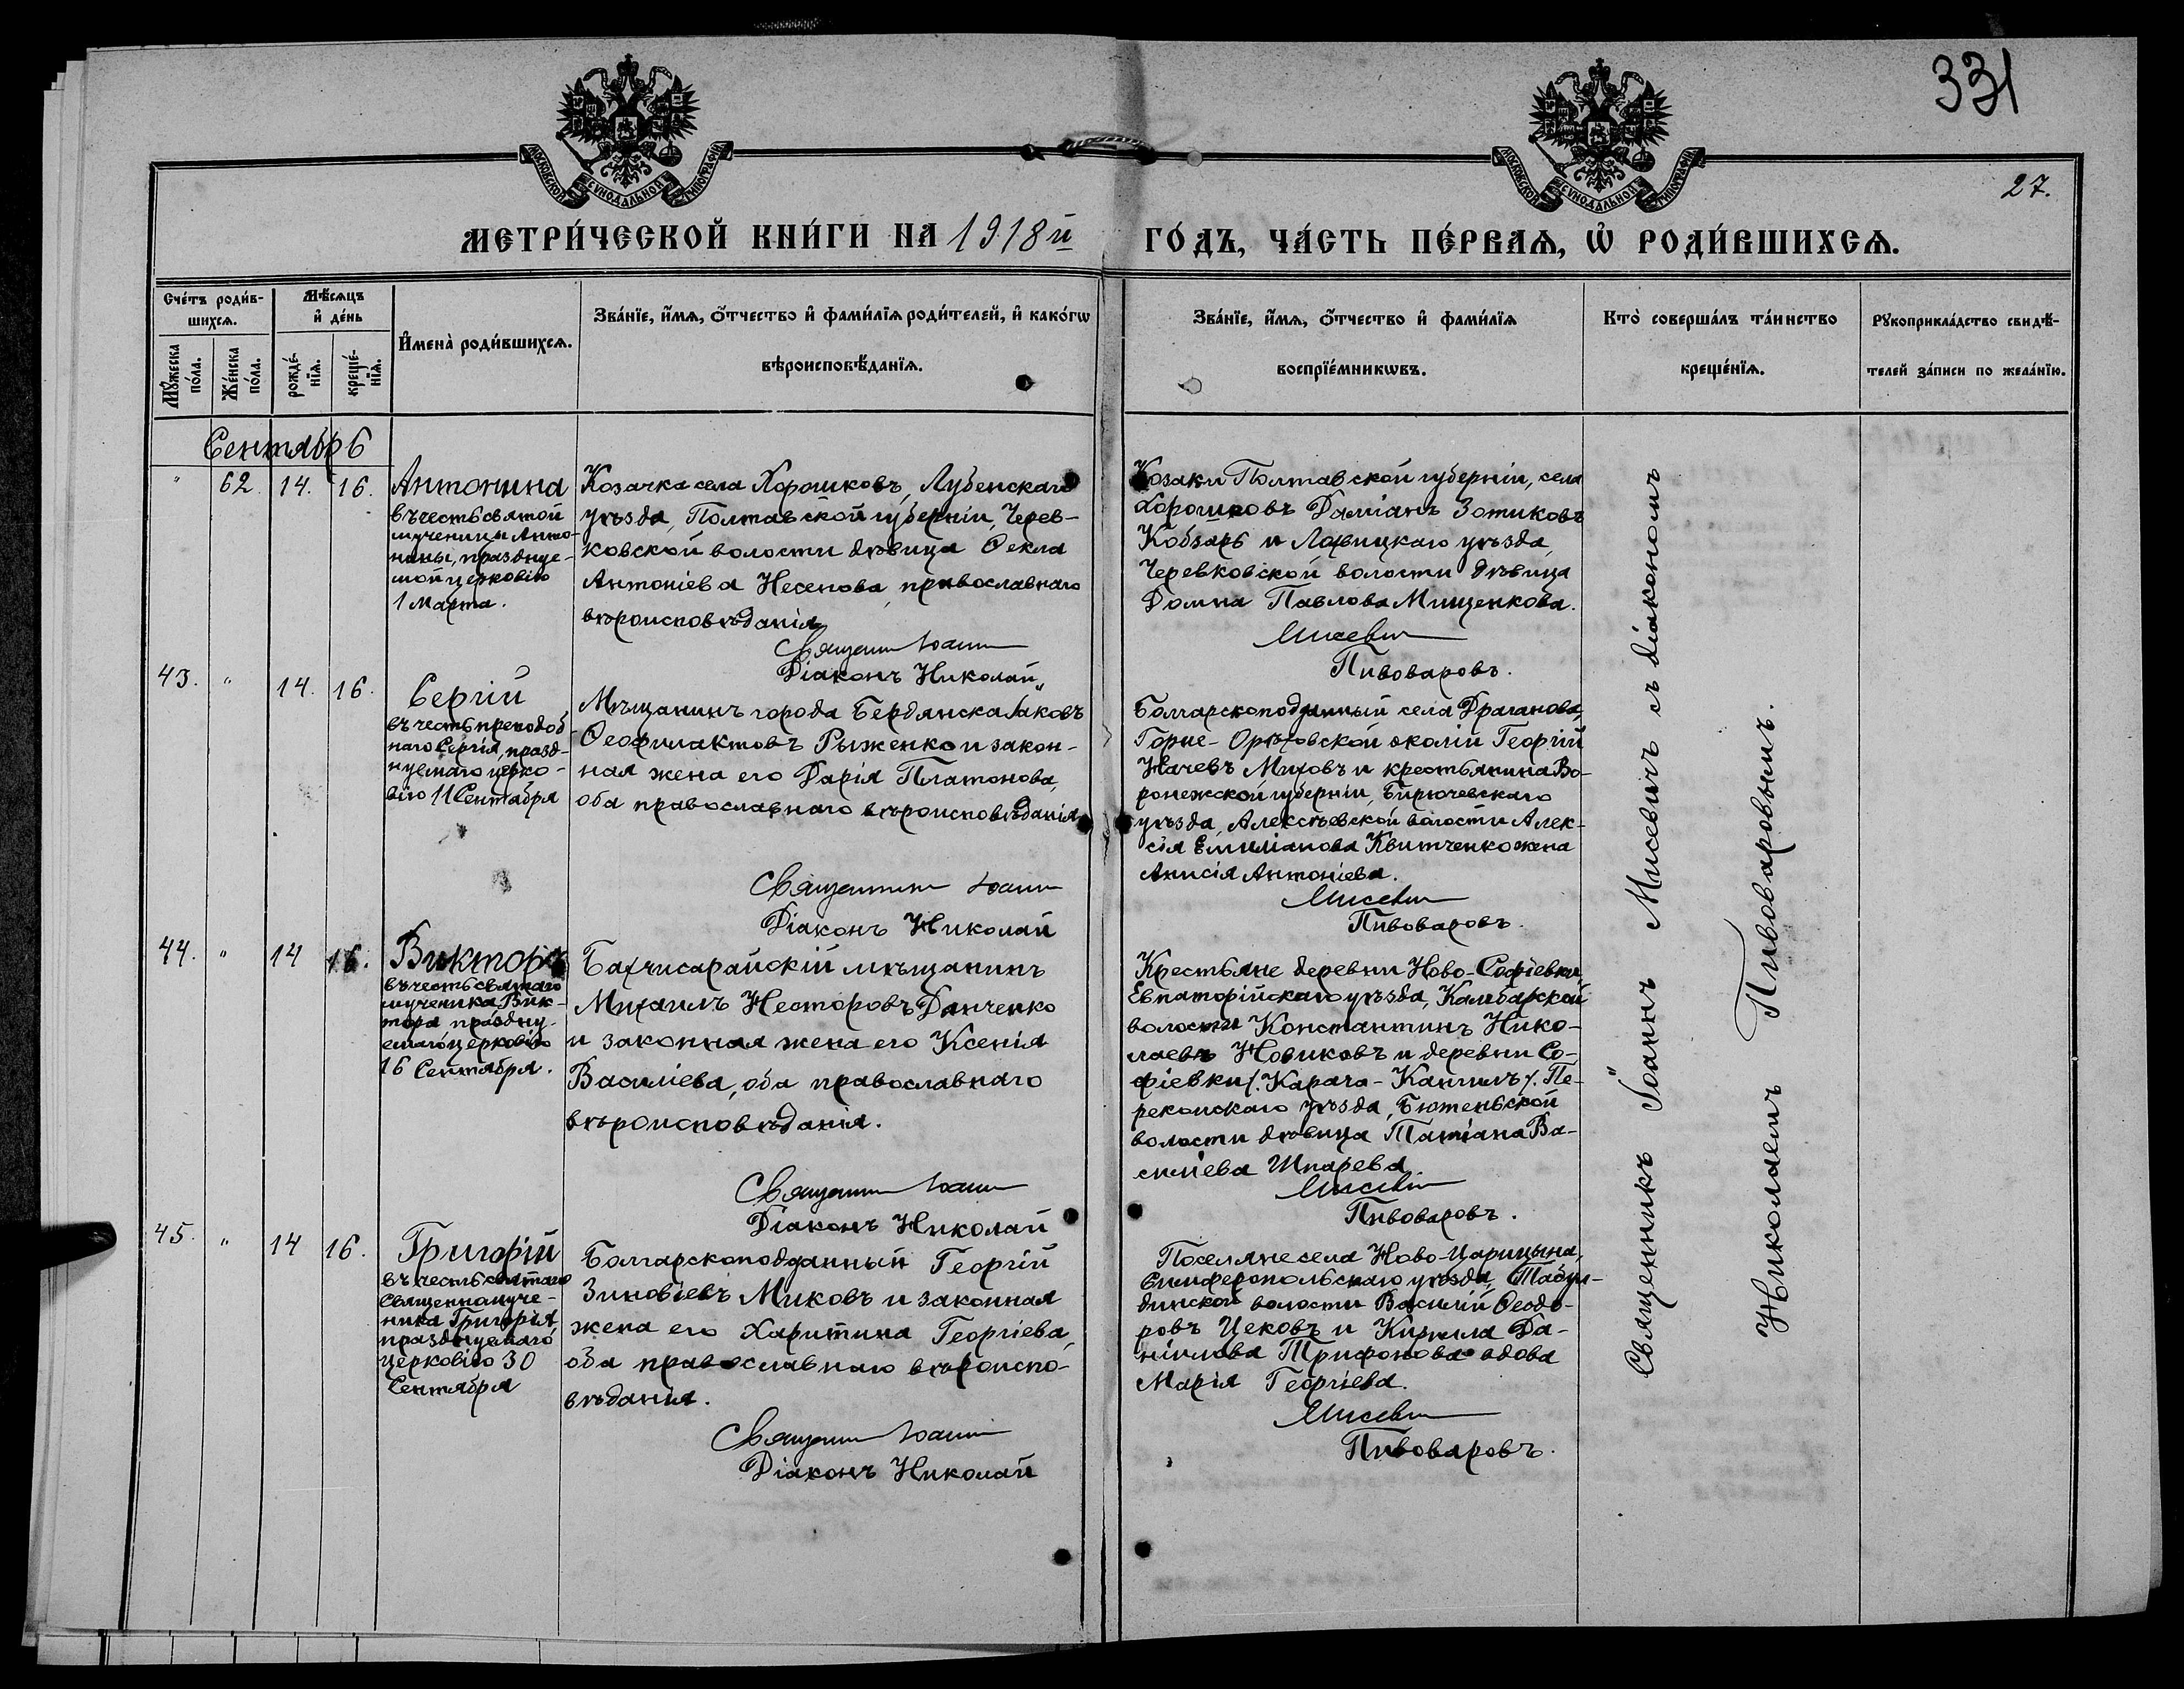 331
27.
МОСКОВСКОЙ СѴНОДАЛЬНОЙ ТИПОГРАФІИ
МОСКОВСКОЙ СѴНОДАЛЬНОЙ ТИПОГРАФІИ
МЕТРИ́ЧЕСКОЙ КНИ́ГИ НА 1918й
ГО́ДЪ, ЧА́СТЬ ПЕ́РВАѦ, Ѡ҆ РОДИ́ВШИХСѦ.
Сче́тъ роди́в-
шихсѧ.
Мѣ́сѧцъ
и҆ де́нь
Мꙋ́жеска
по́ла.
Же́нска
по́ла.
рожде́-
нїѧ.
креще́-
нїѧ.
И҆мена̀ роди́вшихсѧ.
Зва́нїе, и҆́мѧ, ѻ҆́тчество и҆ фами́лїѧ роди́телей, и҆ како́гѡ
вѣроисповѣ́данїѧ.
Зва́нїе, и҆́мѧ, ѻ҆́тчество и҆ фами́лїѧ
воспрїе́мникѡвъ.
Кто̀ соверша́лъ та́инство
креще́нїѧ.
Рꙋкоприкла́дство свидѣ́-
телей за́писи по жела́нїю.
Сентябрь
" 62. 14. 16.
Антонина
въ честь святой
мученицы Анто-
нины, праздуе-
мой церковію
1 Марта.
Козачка села Хорошковъ, Лубенскаго
уѣзда, Полтавской губерніи, Черев-
ковской волости дѣвица Ѳекла
Антоніева Несенова, православнаго
вѣроисповѣданія
Священ Іоанн
Діаконъ Николай
Козаки Полтавской губерніи, села
Хорошковъ Даміанъ Зотиковъ
Кобзарь и Лохвицкаго уѣзда,
Черевковской волости дѣвица
Домна Павлова Мищенкова.
Мисевич
Пивоваровъ.
43. " 14. 16.
Сергій
въ честь преподоб
наго Сергія, празд-
нуемаго церко-
вію 11 Сентября
Мѣщанинъ города Бердянска Іаковъ
Ѳеофилактовъ Рыженко и закон-
ная жена его Дарія Платонова,
оба православнаго вѣроисповѣданія
Священник Іоанн
Діаконъ Николай
Болгарскоподданный села Драганова,
Горне-Орѣховской околіи Георгій
Начевъ Миховъ и крестьянина Во-
ронежской губерніи, Бирючевскаго
уѣзда, Алексѣевской волости Алек-
сія Емиліанова Квитченко жена
Анисія Антоніева.
Мисевич
Пивоваровъ.
44. " 14 16.
Викторъ
въ честь святаго
мученика Вик-
тора праздну-
емаго церковію
16 Сентября.
Бахчисарайскій мѣщанинъ
Михаилъ Несторовъ Данченко
и законная жена его Ксенія
Василіева, оба православнаго
вѣроисповѣданія.
Священ Іоанн
Діаконъ Николай
Крестьяне деревни Ново-Софіевки,
Евпаторійскаго уѣзда, Камбарской
волости Константинъ Нико-
лаевъ Новиковъ и деревни Со-
фіевки /. Карача-Кангилъ /. Пе-
рекопскаго уѣзда, Бютеньской
волости дѣвица Татіана Ва-
силіева Шпарева.
Мисевич
Пивоваровъ.
45. " 14 16.
Григорій
въ честь святаго
Священномуче-
ника Григорія
празднуемаго
церковію 30
Сентября
Болгарскоподданный Георгій
Зиновіевъ Миковъ и законная
жена его Харитина Георгіева,
оба православнаго вѣроиспо-
вѣданія.
Священ Іоанн
Діаконъ Николай
Поселяне села Ново-Царицына,
Симферопольскаго уѣзда, Табул-
динской волости Василій Ѳеодо-
ровъ Цековъ и Кирилла Да-
ніилова Трифонова вдова
Марія Георгіева.
Мисевич
Пивоваровъ.
Священникъ Іоаннъ Мисевичъ съ діакономъ
Николаемъ Пивоваровымъ.